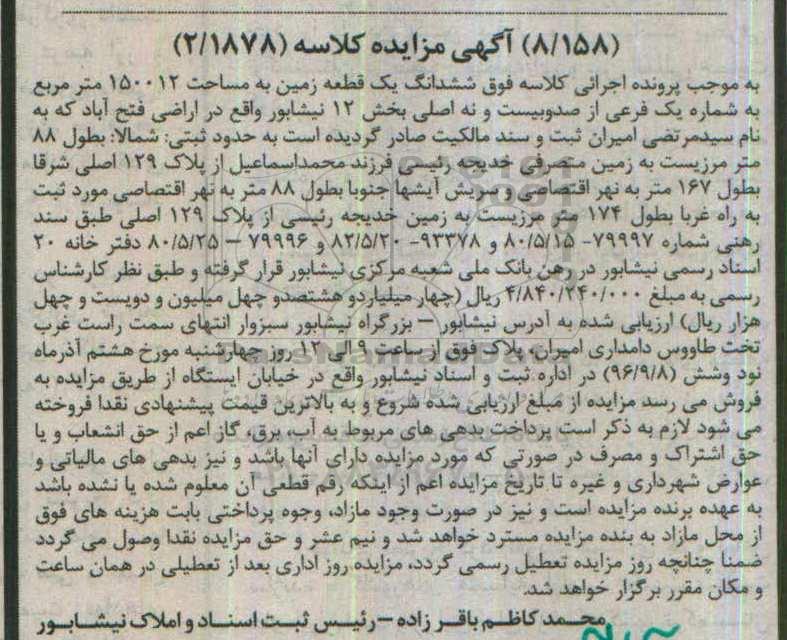 (۸/۱۵۸) آگهی مزایده کلاسه (۲/۱۸۷۸)
به موجب پرونده اجرائی کلاسه فوق ششدانگ یک قطعه زمین به مساحت ۱۵۰۰۱۲ متر مربع
به شماره یک فرعی از صدوبیست و نه اصلی بخش ۱۲ نیشابور واقع در اراضی فتح آباد که به
نام سیدمرتضی امیران ثبت و سند مالکیت صادر گردیده است به حدود ثبتی: شمالا: بطول ۸۸
متر مرزیست به زمین مصرفی خدیجه رئیسی فرزند محمداسماعیل از پلاک ۱۲۹ اصلی شرقا
بطول ۱۶۷ متر به نهر اقتصاصی و سریش آیشها جنوبا بطول ۸۸ متر به نهر اقتصاصی مورد ثبت
به راه غربا بطول ۱۷۴ متر مرزیست به زمین خدیجه رئیسی از پلاک ۱۲۹ اصلی طبق سند
رهنی شماره ۷۹۹۹۷- ۸۰/۵/۱۵ و ۹۳۳۷۸- ۸۲/۵/۲۰ و ۷۹۹۹۶ – ۸۰/۵/۲۵ دفتر خانه ۲۰
اسناد رسمی نیشابور در رهن بانک ملی شعبه مرکزی نیشابور قرار گرفته و طبق نظر کارشناس
رسمی به مبلغ ۴/۸۴۰/۲۴۰/۰۰۰ ریال (چهار میلیاردو هشتصدو چهل میلیون و دویست و چهل
هزار ریال) ارزیابی شده به آدرس نیشابور – بزرگراه نیشابور سبزوار انتهای سمت راست غرب
تخت طاووس دامداری امیران، پلاک فوق از ساعت ۹ الی ۱۲ روز چهارشنبه مورخ هشتم آذرماه
نود وشش (۹۶/۹/۸) در اداره ثبت و اسناد نیشابور واقع در خیابان ایستگاه از طریق مزایده به
فروش می رسد مزایده از مبلغ ارزیابی شده شروع و به بالاترین قیمت پیشنهادی نقدا فروخته
می شود لازم به ذکر است پرداخت بدهی های مربوط به آب، برق، گاز اعم از حق انشعاب و یا
حق اشتراک و مصرف در صورتی که مورد مزایده دارای آنها باشد و نیز بدهی های مالیاتی و
عوارض شهرداری و غیره تا تاریخ مزایده اعم از اینکه رقم قطعی آن معلوم شده یا نشده باشد
به عهده برنده مزایده است و نیز در صورت وجود مازاد، وجوه پرداختی بابت هزینه های فوق
از محل مازاد به بنده مزایده مسترد خواهد شد و نیم عشر و حق مزایده نقدا وصول می گردد
ضمنا چنانچه روز مزایده تعطیل رسمی گردد، مزایده روز اداری بعد از تعطیلی در همان ساعت
و مکان مقرر برگزار خواهد شد.
محمد کاظم باقر زاده – رئیس ثبت اسناد و املاک نیشابور